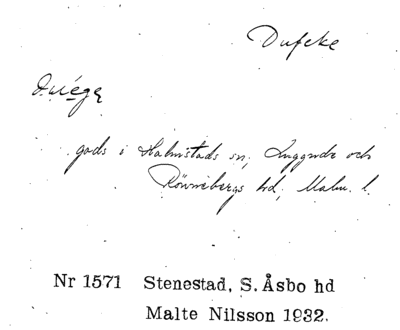 Dufeke
gods i Halmstads sn, Luggude och
Rönnebergs hd, Malm. l.
Nr 1571 Stenestad, S. Åsbo hd
Malte Nilsson 1932.